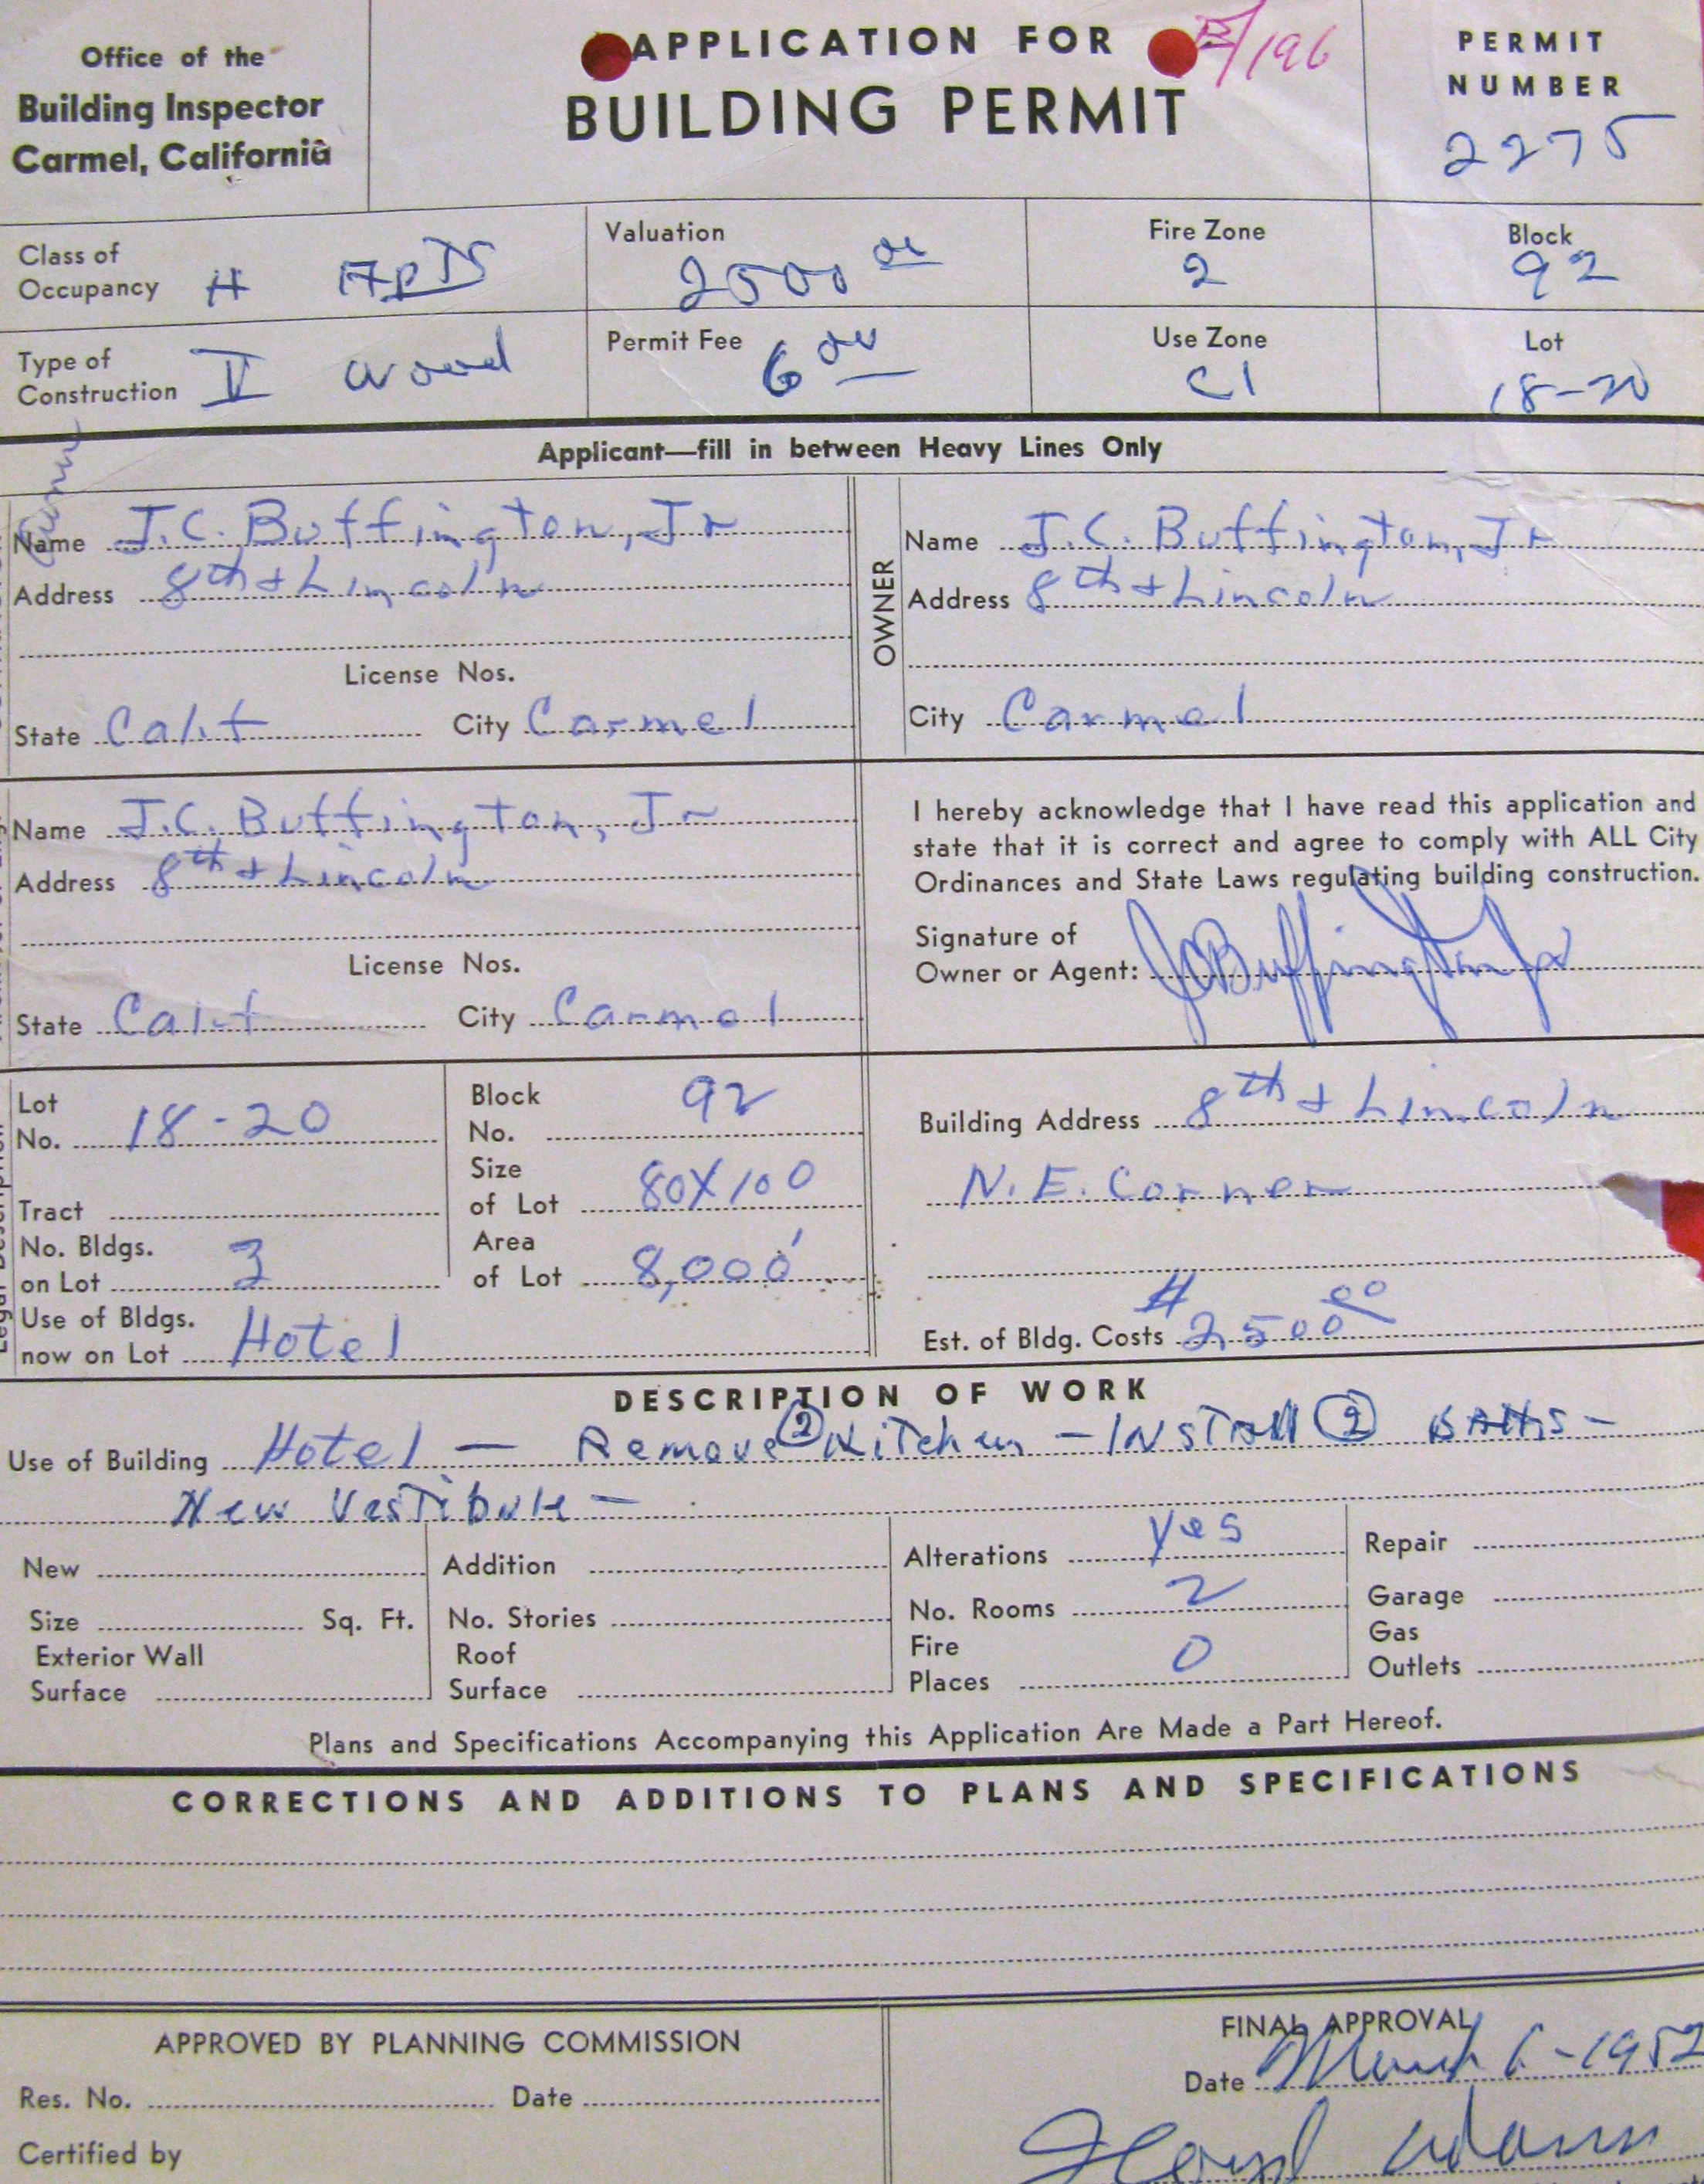 Office of the
Building Inspector
Carmel, California
APPLICATION FOR
BUILDING PERMIT
B/196
PERMIT
NUMBER
2275
Class of
Occupancy H Apts
Valuation
2500 00
Fire Zone
2
Block
92
Type of
Construction V wood
Permit Fee 6 00
Use Zone
C1
Lot
18-20
Applicant—fill in between Heavy Lines Only
Name J.C. Buffington, Jr
Address 8th + Lincoln
License Nos.
State Calif City Carmel
OWNER
Name J.C. Buffington, Jr
Address 8th + Lincoln
City Carmel
Name J.C. Buffington, Jr
Address 8th + Lincoln
License Nos.
State Calif City Carmel
I hereby acknowledge that I have read this application and
state that it is correct and agree to comply with ALL City
Ordinances and State Laws regulating building construction.
Signature of
Owner or Agent: JCBuffington Jr
Lot
No. 18-20
Tract
No. Bldgs.
on Lot 3
Use of Bldgs.
now on Lot Hotel
Block
No. 92
Size
of Lot 80X100
Area
of Lot 8,000'
Building Address 8th + Lincoln
N.E. Corner
Est. of Bldg. Costs $2500 00
DESCRIPTION OF WORK
Use of Building Hotel — Remove ② Kitchen — INSTALL ② BATHS —
New Vestibule —
New
Addition
Alterations yes
Repair
Size Sq. Ft.
No. Stories
No. Rooms 2
Garage
Exterior Wall
Surface
Roof
Surface
Fire
Places 0
Gas
Outlets
Plans and Specifications Accompanying this Application Are Made a Part Hereof.
CORRECTIONS AND ADDITIONS TO PLANS AND SPECIFICATIONS
APPROVED BY PLANNING COMMISSION
Res. No. Date
Certified by
FINAL APPROVAL
Date March 6-1952
Floyd Adams